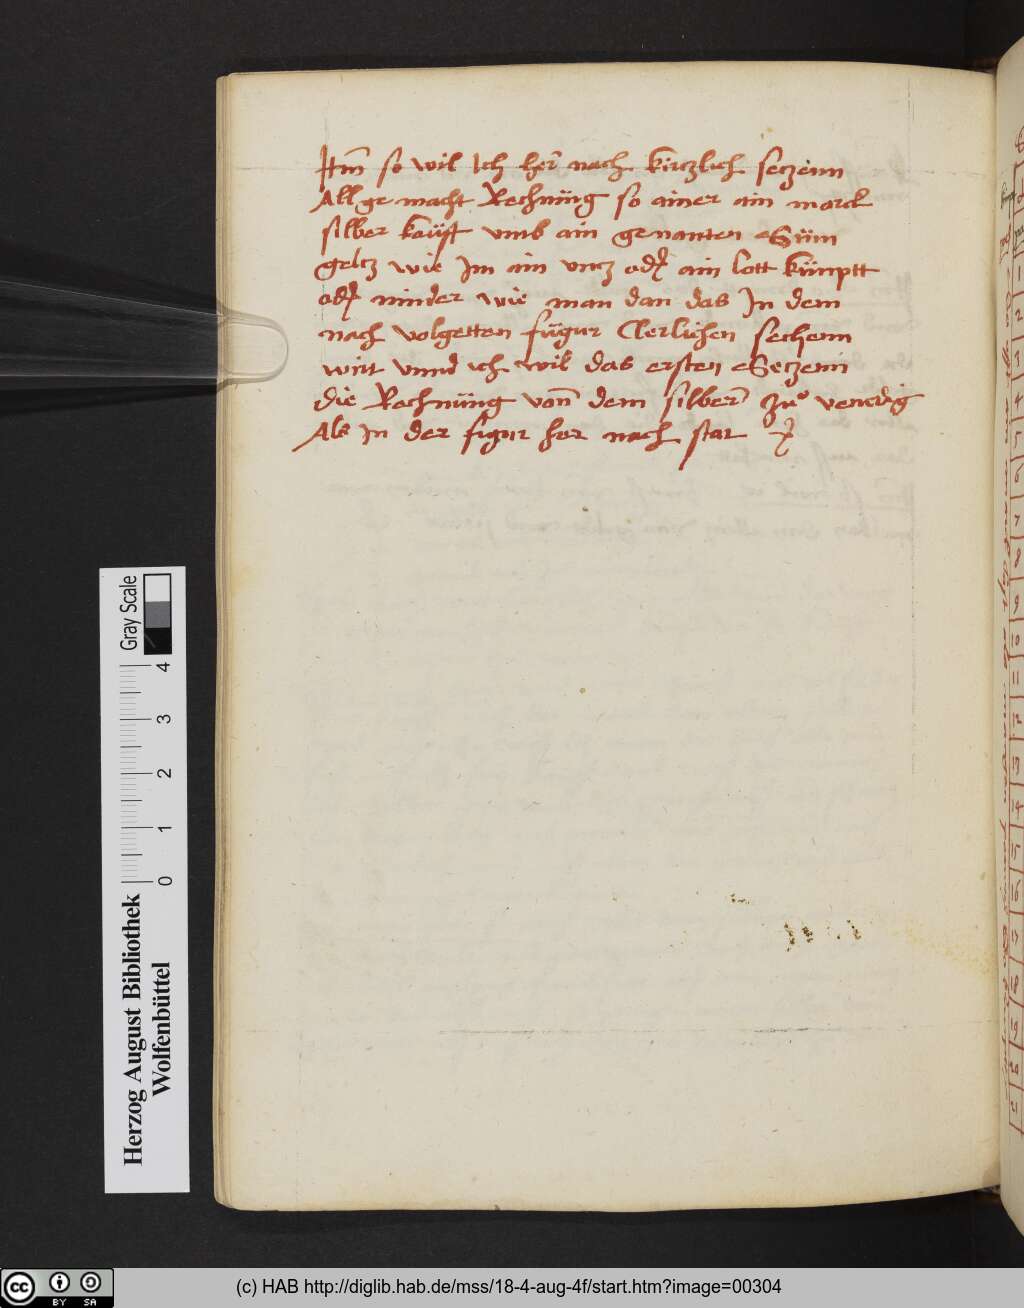 Itm̄ so wil Ich her̄ nach kirtzlich setzenn
All ge macht Rechnüng so ainer ain marck
silber kaüft vmb ain genanten Süm
geltz wie Im ain vntz od ain lott künptt
od minder wie man dan das In dem
nach volgetten fügur Clerlichen sechenn
wirt vnnd ich wil das ersten Setzenn
die Rechnüng von̄ dem silber̄ zuͦ venedig
Als In der figur her nach stat
Herzog August Bibliothek
Wolfenbüttel
0 1 2 3 4
Gray Scale
cc BY SA
(c) HAB http://diglib.hab.de/mss/18-4-aug-4f/start.htm?image=00304